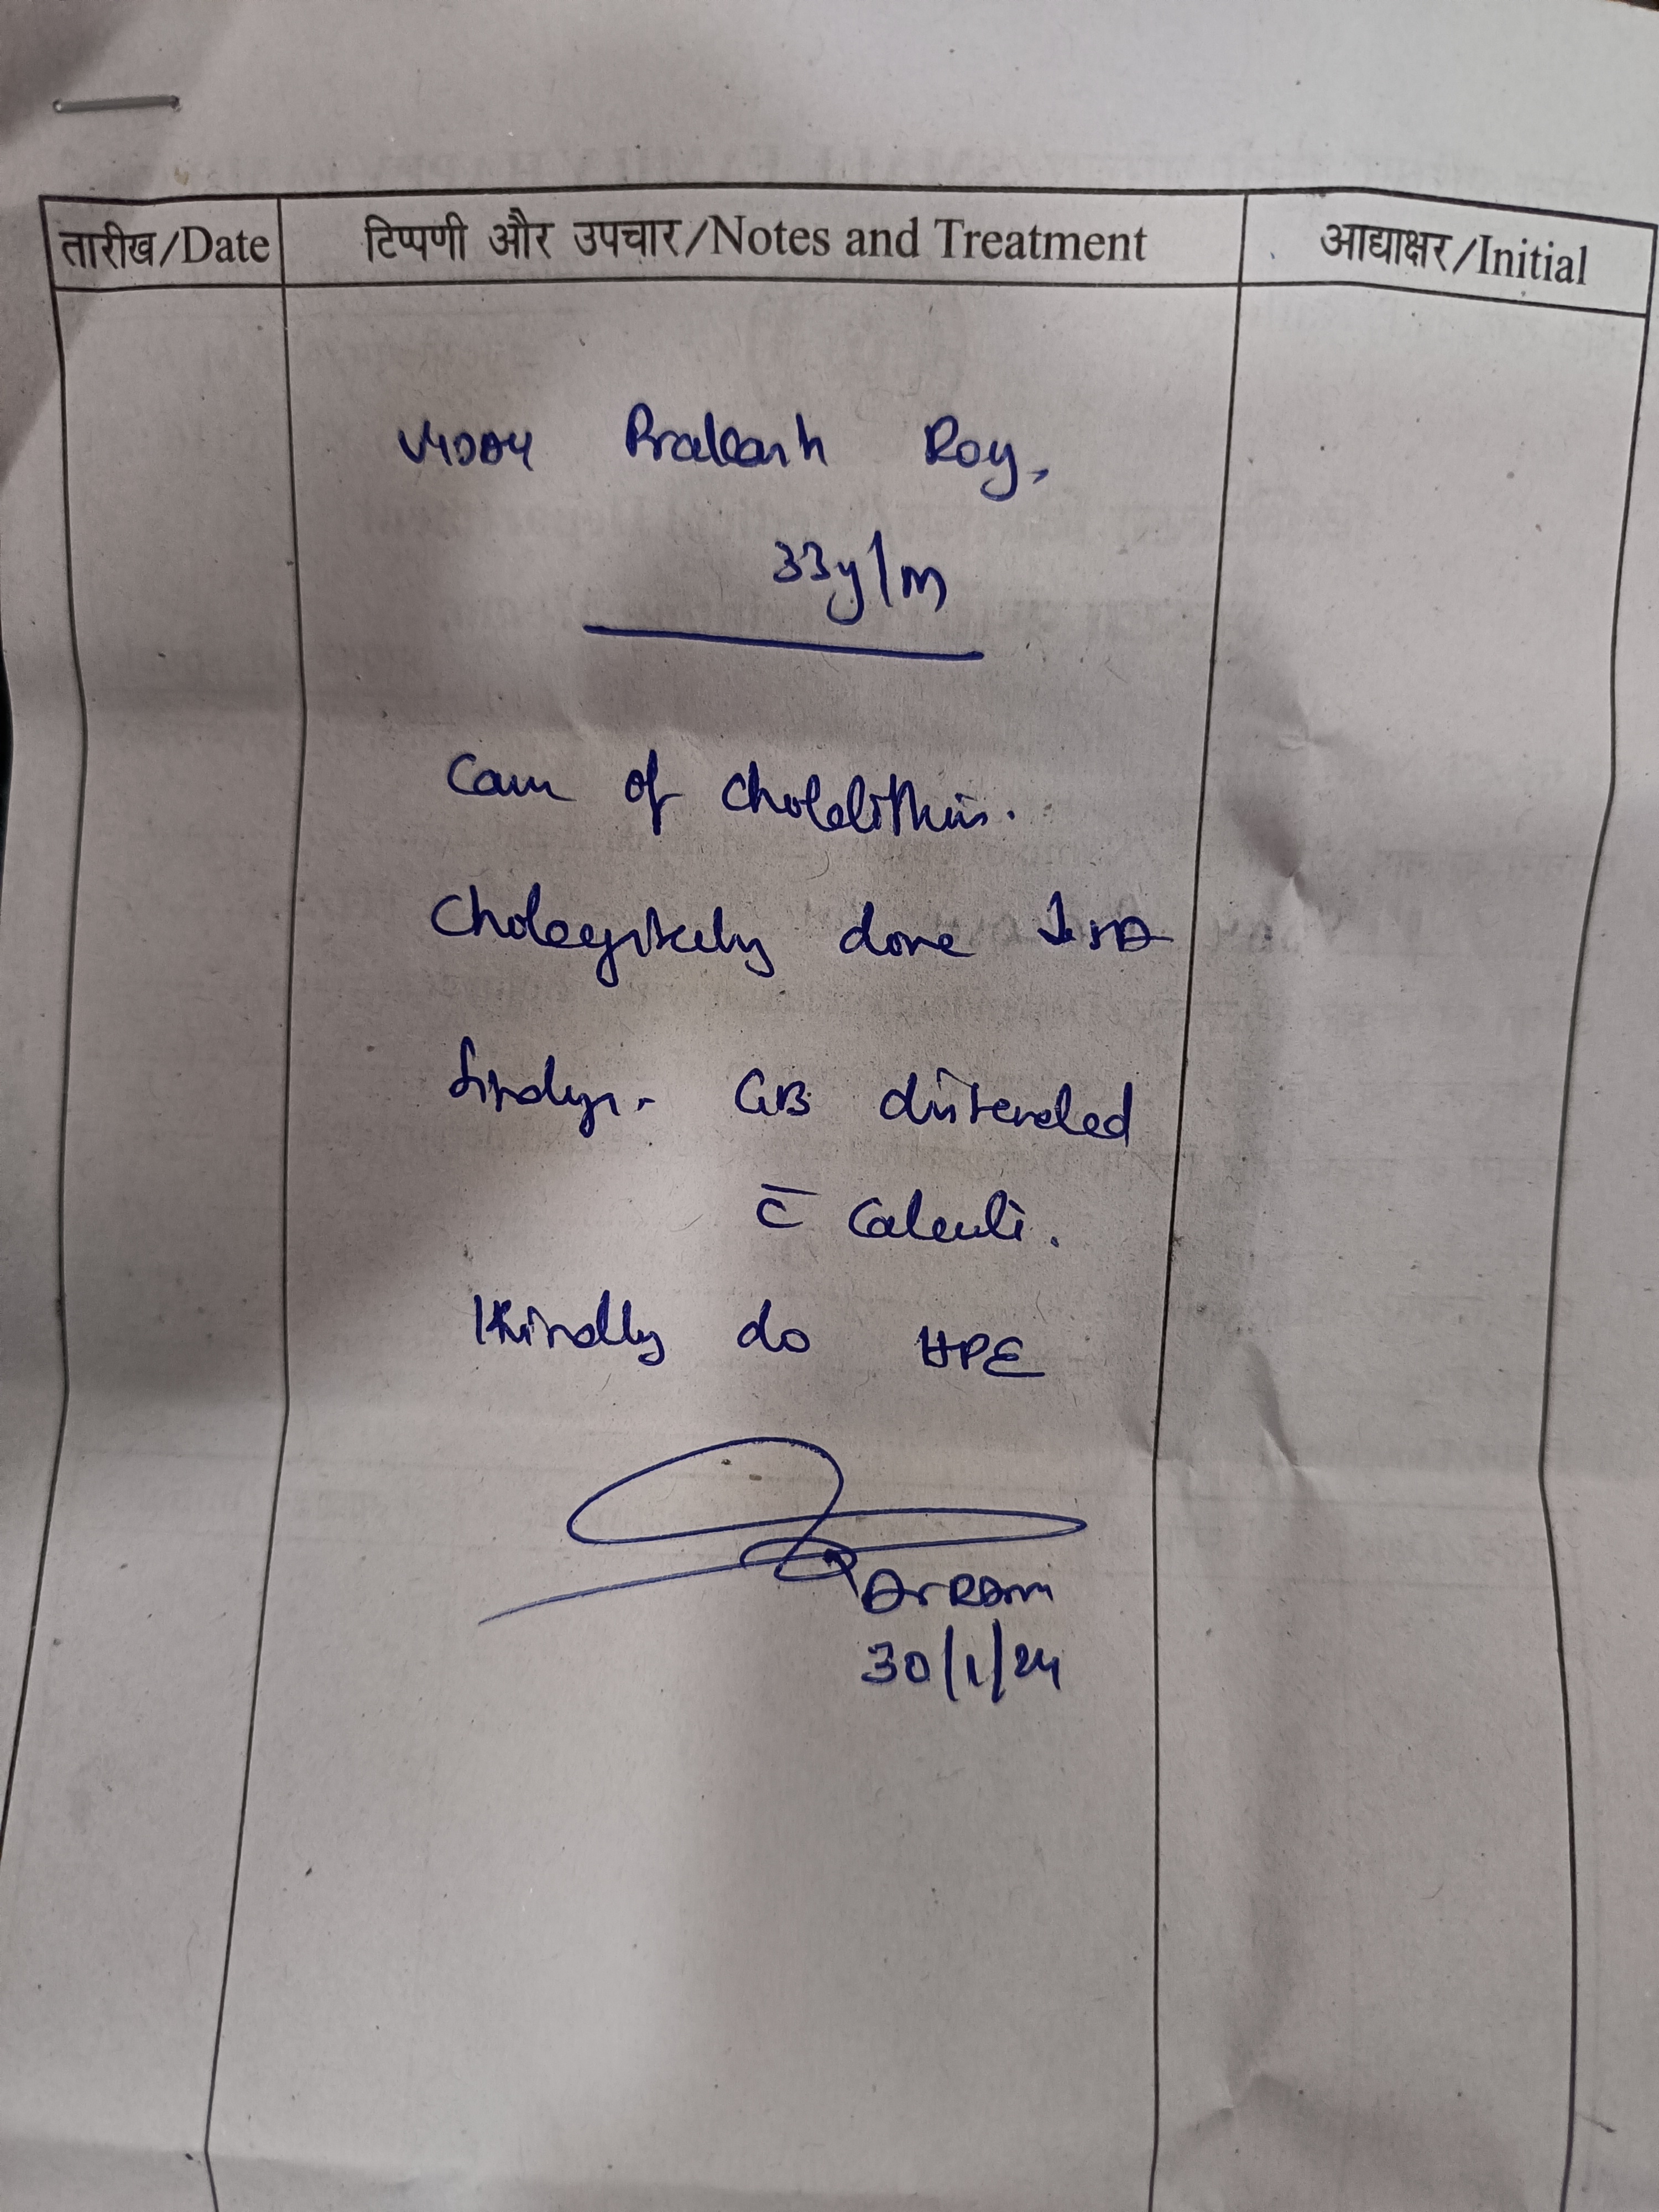 तारीख/Date टिप्पणी और उपचार/Notes and Treatment आद्याक्षर/Initial
Prakash Roy,
33y/m
Case of cholelithiasis.
Cholecystectomy done
findings - GB distended
c̄ calculi.
Kindly do HPE
Dr Ram
30/1/24